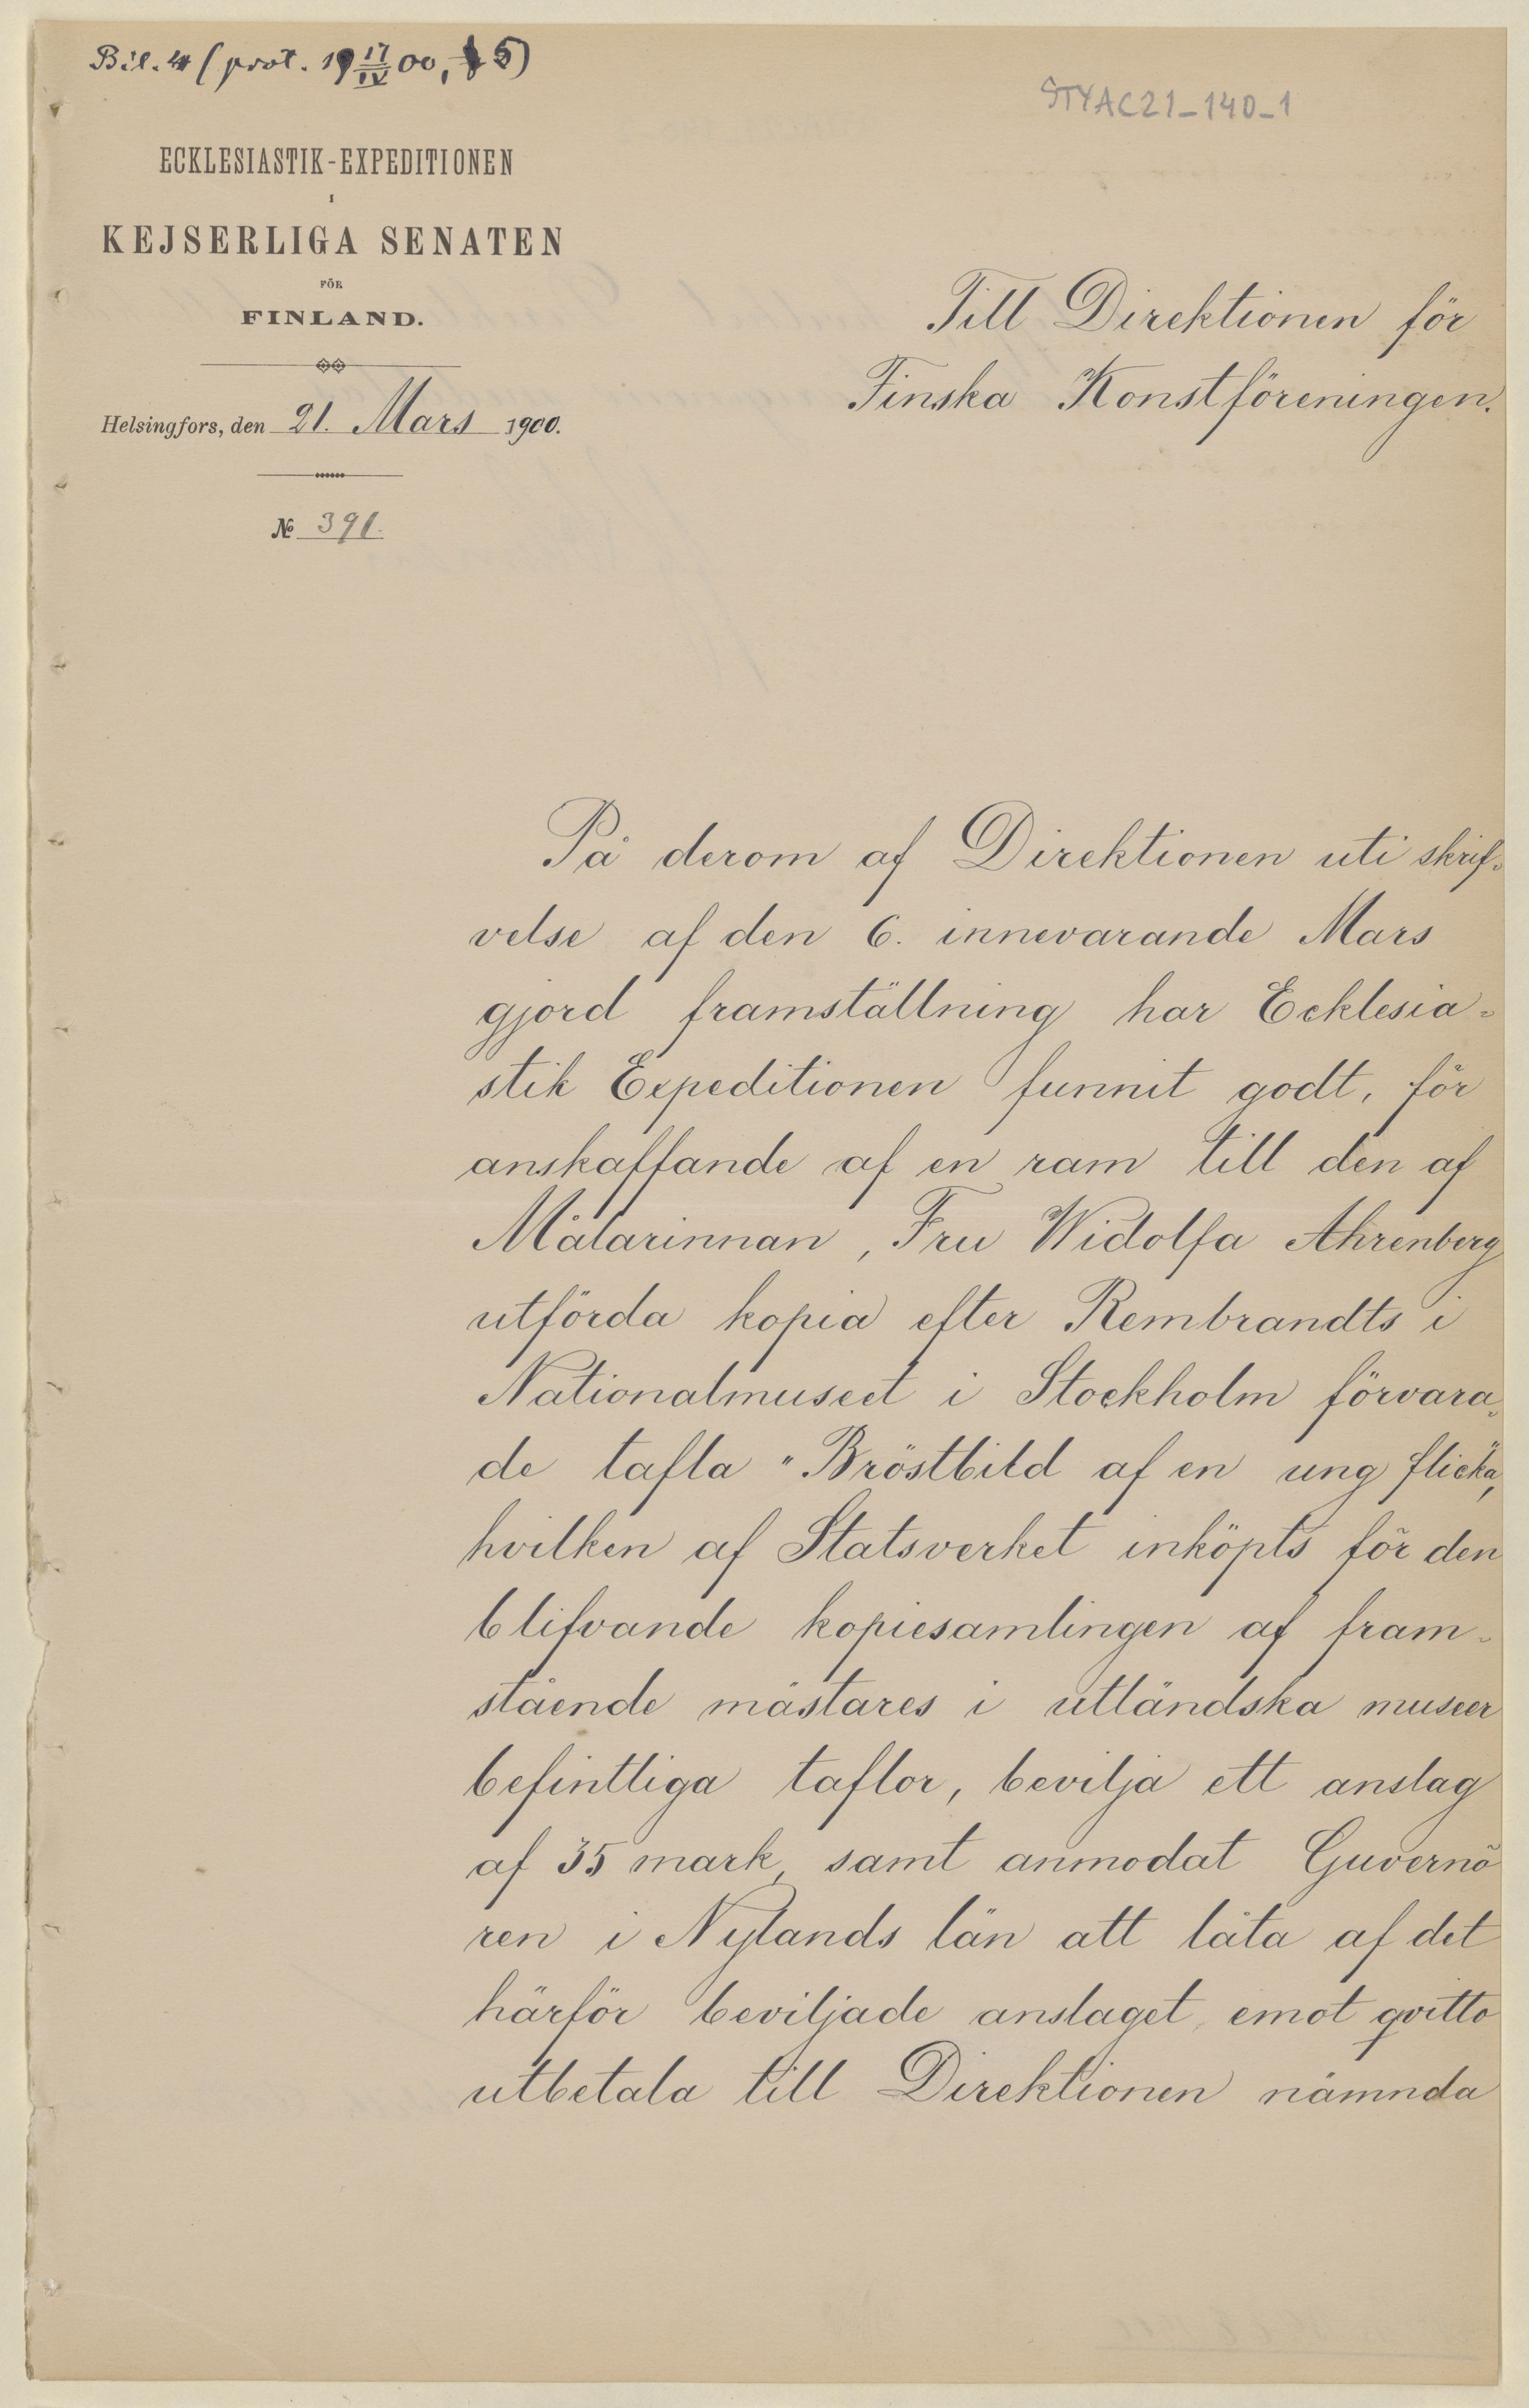 Bil. 4 (prot. 19 17/IV 00, § 5)
STYAC21_140_1
ECKLESIASTIK-EXPEDITIONEN
I
KEJSERLIGA SENATEN
FÖR
FINLAND.
Helsingfors, den 21. Mars 1900.
№ 391.
Till Direktionen för
Finska Konstföreningen.
På derom af Direktionen uti skrif-
velse af den 6. innevarande Mars
gjord framställning har Ecklesia-
stik Expeditionen funnit godt, för
anskaffande af en ram till den af
Målarinnan, Fru Widolfa Ahrenberg
utförda kopia efter Rembrandts i
Nationalmuseet i Stockholm förvara-
de tafla "Bröstbild af en ung flicka",
hvilken af Statsverket inköpts för den
blifvande kopiesamlingen af fram-
stående mästares i utländska museer
befintliga taflor, bevilja ett anslag
af 35 mark, samt anmodat Guvernö
ren i Nylands län att låta af det
härför beviljade anslaget, emot qvitto
utbetala till Direktionen nämnda